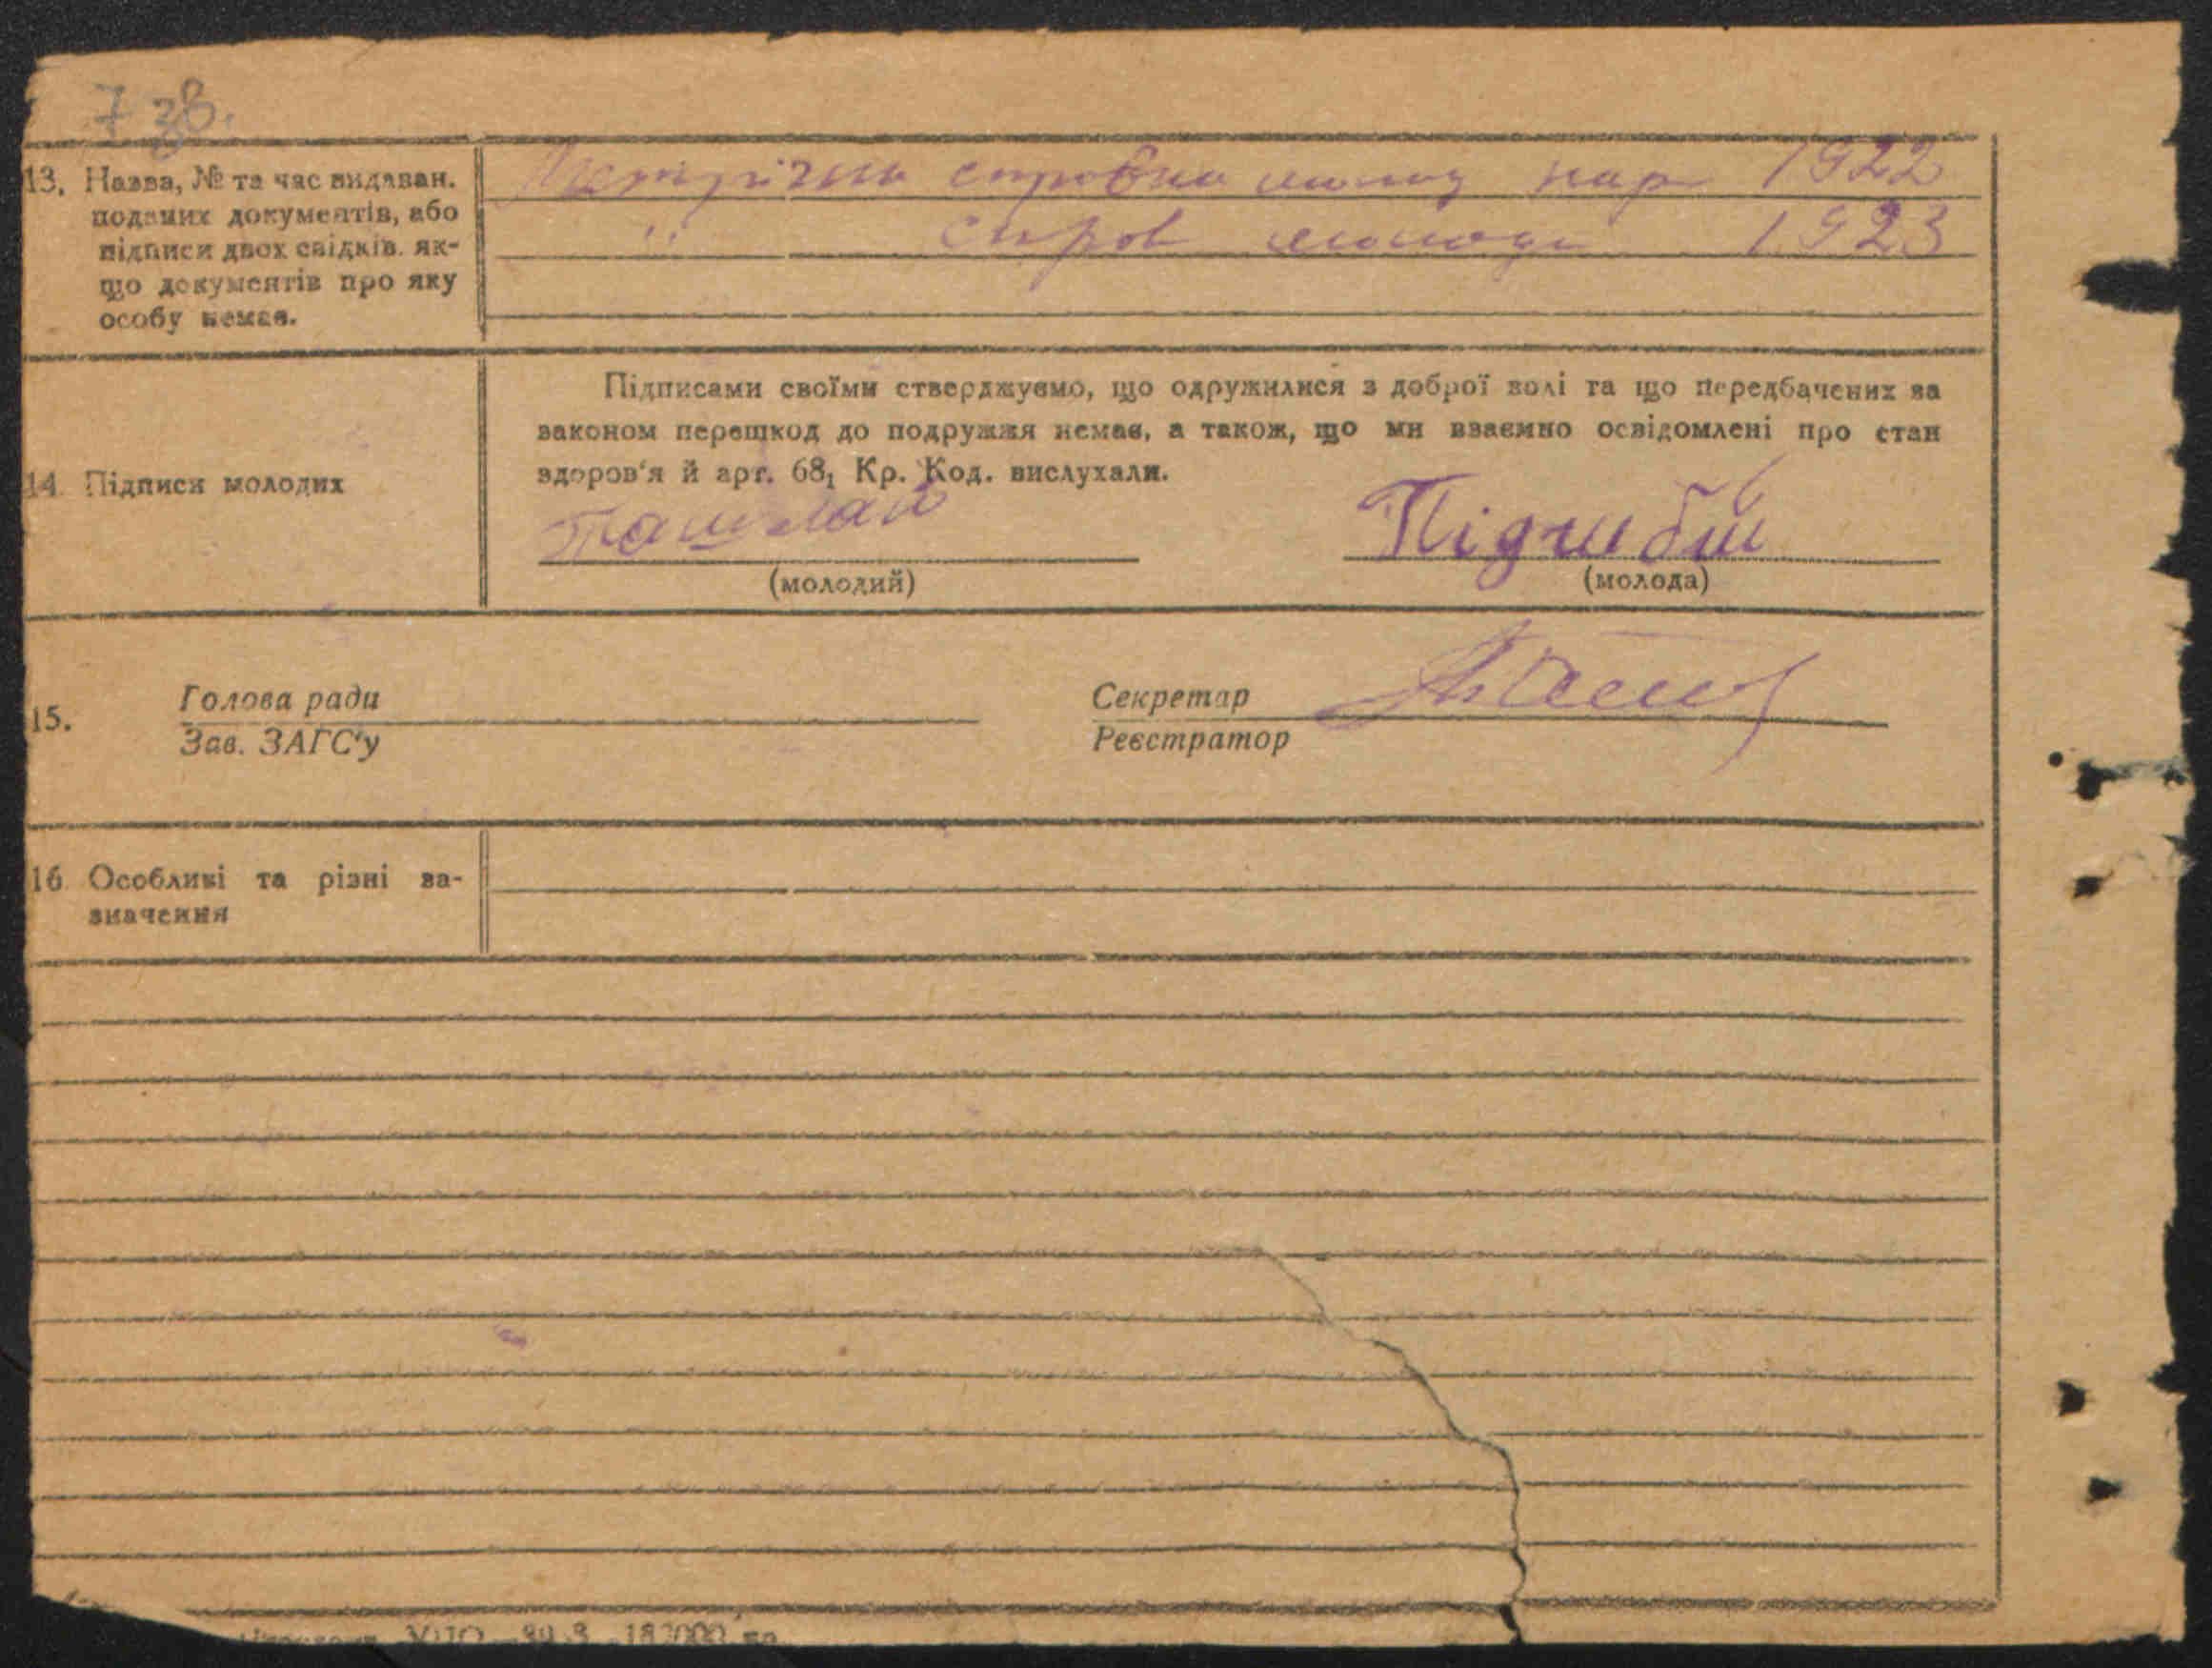 7 38.
13. Назва, № та час видаван.
поданих документів, або
підписи двох свідків. як-
що документів про яку
особу немає.
Метрична справка молод нар 1922
" справ молода 1923
14. Підписи молодих
Підписами своїми стверджуємо, що одружилися з доброї волі та що передбачених за
законом перешкод до подружжя немає, а також, що ми взаємно освідомлені про стан
здоров'я й арт. 68₁ Кр. Код. вислухали.
(молодий)
(молода)
15. Голова ради
Зав. ЗАГС'у
Секретар
Реєстратор
16. Особливі та різні за-
значення